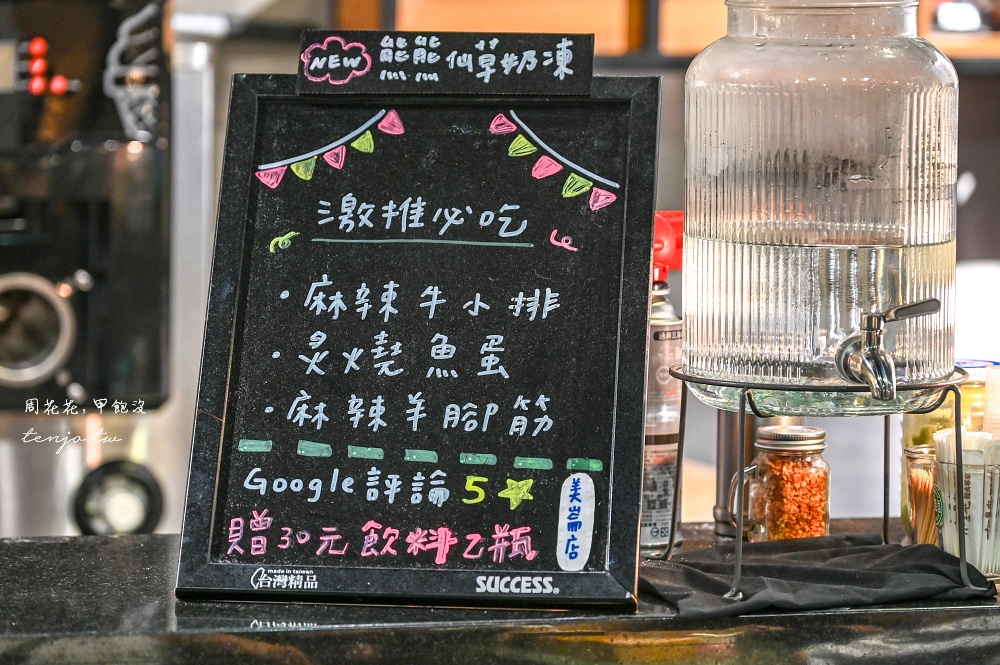 NEW 熊熊仙草奶凍
激推必吃
・麻辣牛小排
・炙燒魚蛋
・麻辣羊腳筋
Google評論5☆
美崙店
贈30元飲料乙瓶
made in taiwan
台灣精品
SUCCESS®
周花花,甲飽沒
tenjo.tw